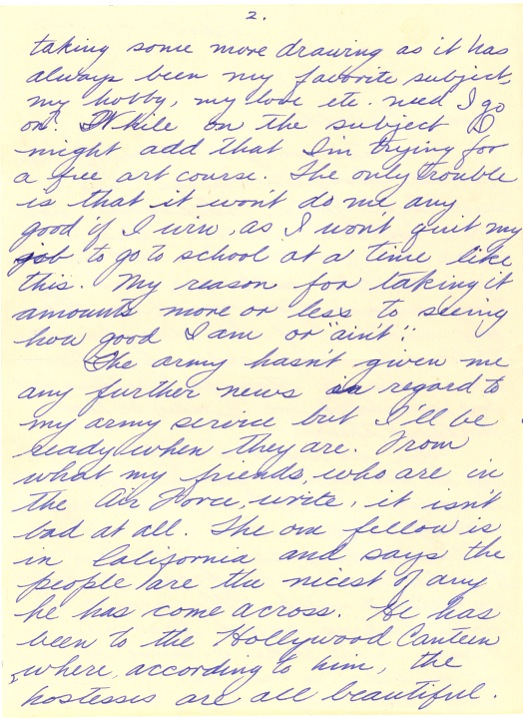 2.
taking some more drawing as it has
always been my favorite subject,
my hobby, my love etc. need I go
on? While on the subject I
might add that I'm trying for
a free art course. The only trouble
is that it won't do me any
good if I win, as I won't quit my
job to go to school at a time like
this. My reason for taking it
amounts more or less to seeing
how good I am or "ain't".
The army hasn't given me
any further news in regard to
my army service but I'll be
ready when they are. From
what my friends, who are in
the Air Force, write, it isn't
bad at all. The one fellow is
in California and says the
people are the nicest of any
he has come across. He has
been to the Hollywood Canteen
where, according to him, the
hostesses are all beautiful.